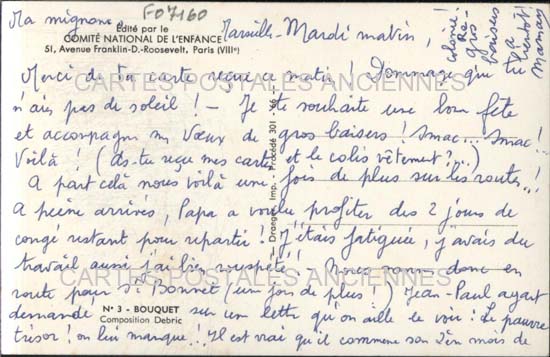 Ma mignone, F07160
Edité par le
COMITÉ NATIONAL DE L'ENFANCE
51, Avenue Franklin-D.-Roosevelt, Paris (VIIIe)
Marseille - Mardi matin,
Re-
gros
baisers
à
bientôt!
Maman
Merci de ta carte reçue ce matin ! Dommage que tu
n'aies pas de soleil ! - Je te souhaite une bonne fête
et accompagne mes vœux de gros baisers ! Smac... Smac !
Voilà ! (as-tu reçu mes cartes et le colis vêtement ?...)
A part celà nous voilà une fois de plus sur les routes..!
A peine arrivés, Papa a voulu profiter des 2 jours de
congé restant pour repartir ! J'étais fatiguée, j'avais du
travail aussi j'ai bien rouspété!! Nous voilà donc en
route pour St Bonnet (une fois de plus !) Jean-Paul ayant
demandé sur une lettre qu'on aille le voir ! Le pauvre
trésor ! on lui manque !! Il est vrai qu'il commence son 2èm mois de
Draeger Imp. - Procédé 301 - 66
N° 3 - BOUQUET
Composition Debric
CARTES POSTALES ANCIENNES
CARTES POSTALES ANCIENNES
CARTES POSTALES ANCIENNES